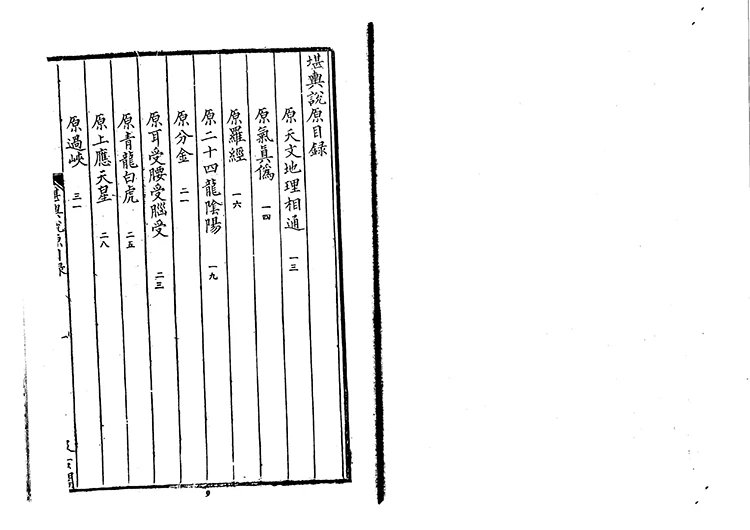 堪輿說原目錄
原天文地理相通 一三
原氣真僞 一四
原羅經 一六
原二十四龍陰陽 一九
原分金 二一
原耳受腰受腦受 二三
原青龍白虎 二五
原上應天星 二八
原過峽 三一
堪輿說原目錄